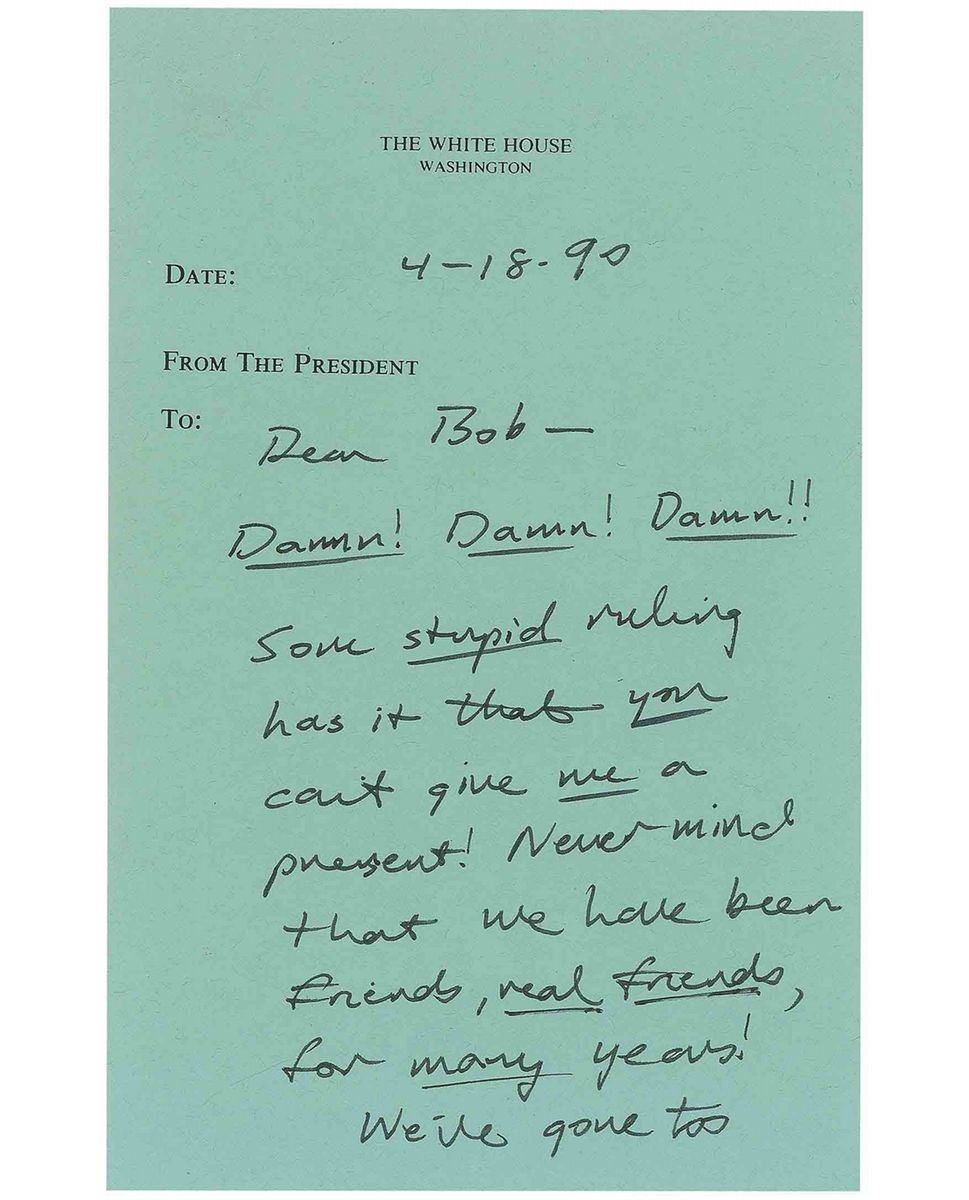 THE WHITE HOUSE
WASHINGTON
DATE: 4-18-90
FROM THE PRESIDENT
TO: Dear Bob—
Damn! Damn! Damn!!
Some stupid ruling
has it that you
can't give me a
present! Never mind
that we have been
friends, real friends,
for many years!
We've gone too